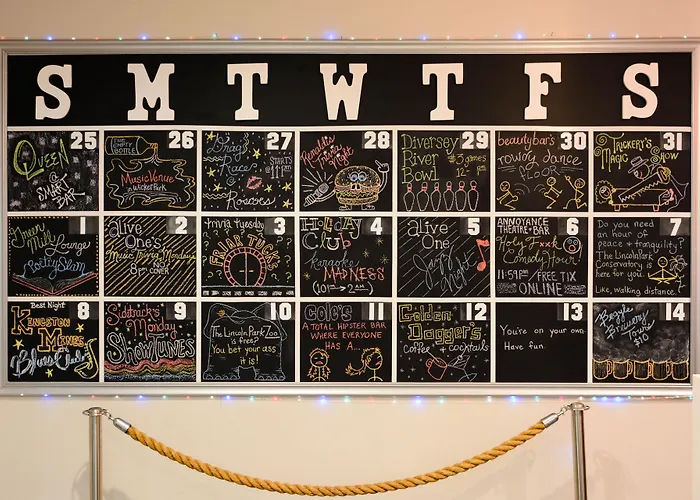 S M T W T F S
25
QUEEN
@
SMART
BAR
26
THE
EMPTY
BOTTLE
MUSIC VENUE
in WICKER PARK
27
Drag
Race
STARTS
@
Roscoes
28
Trivia
Night
29
Diversey
River
Bowl
$5 games
12-
pm
30
beautybar's
roving dance
FLOOR
31
TRICKERY'S
MAGIC SHOW
1
Green
Mill Lounge
Poetry Slam
2
alive
One's
Music Ming Mondays
8pm COVER
3
trivia tuesday
FRIAR TUCKS
4
HOLIDAY
Club
Karaoke
MADNESS
(10PM → 2AM)
5
alive
One
Jazz
Night
6
ANNOYANCE
THEATRE + BAR
Holy F*xk
Comedy Hour
11:59PM FREE TIX
ONLINE
7
Do you need
an hour of
peace + tranquility?
The Lincoln Park
Conservatory is
here for you.
Like, walking distance.
8
Best Night
KINGSTON
MINES
Blues Club
9
Sidetrack's
Monday
SHOWTUNES
10
The Lincoln Park Zoo
is free?
You bet your ass
it is!
11
Cole's
A TOTAL HIPSTER BAR
WHERE EVERYONE
HAS A...
12
Golden
Dagger's
Coffee + cocktails
13
You're on your own.
Have fun.
14
Begyle
Brewery
Tours
$10